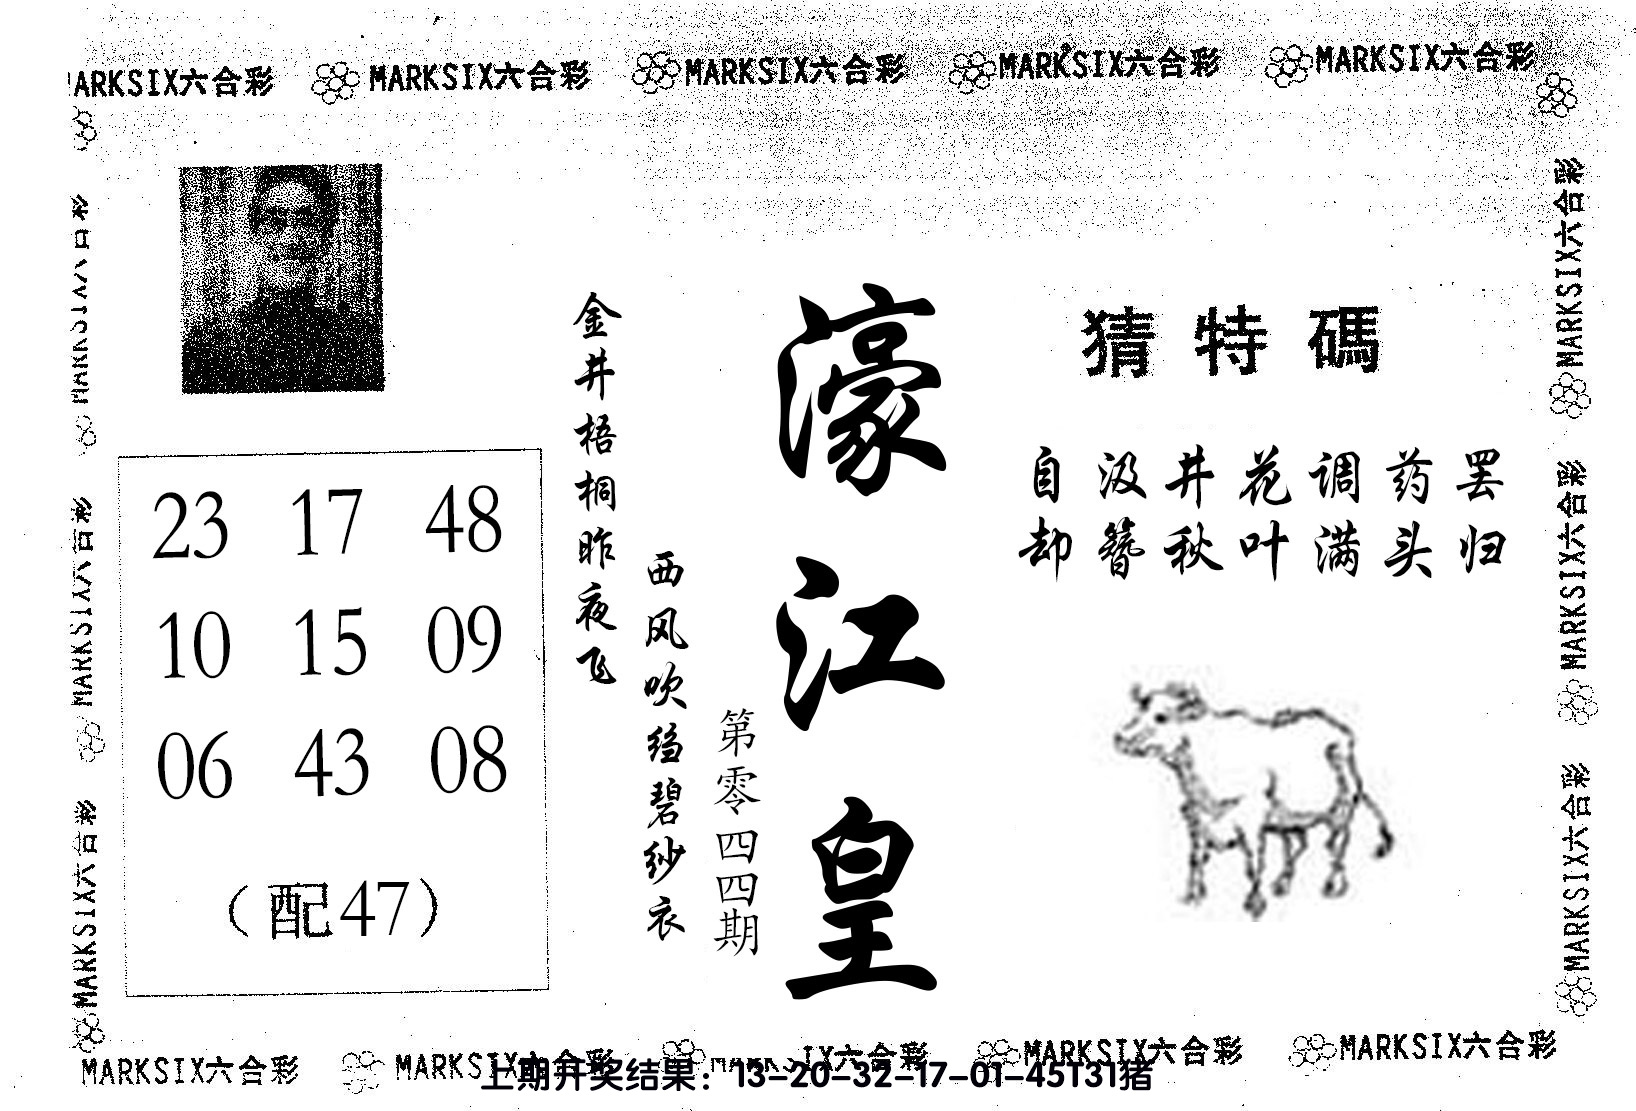 MARKSIX六合彩 MARKSIX六合彩 MARKSIX六合彩 MARKSIX六合彩 MARKSIX六合彩
MARKSIX六合彩
MARKSIX六合彩
MARKSIX六合彩
23 17 48
10 15 09
06 43 08
（配47）
金井梧桐昨夜飞
西风吹绉碧纱衣
第零四四期
濠江皇
猜特碼
自汲井花调药罢
却簪秋叶满头归
MARKSIX六合彩
MARKSIX六合彩
MARKSIX六合彩
MARKSIX六合彩 MARKSIX六合彩 MARKSIX六合彩 MARKSIX六合彩 MARKSIX六合彩
上期开奖结果：13-20-32-17-01-45T31猪